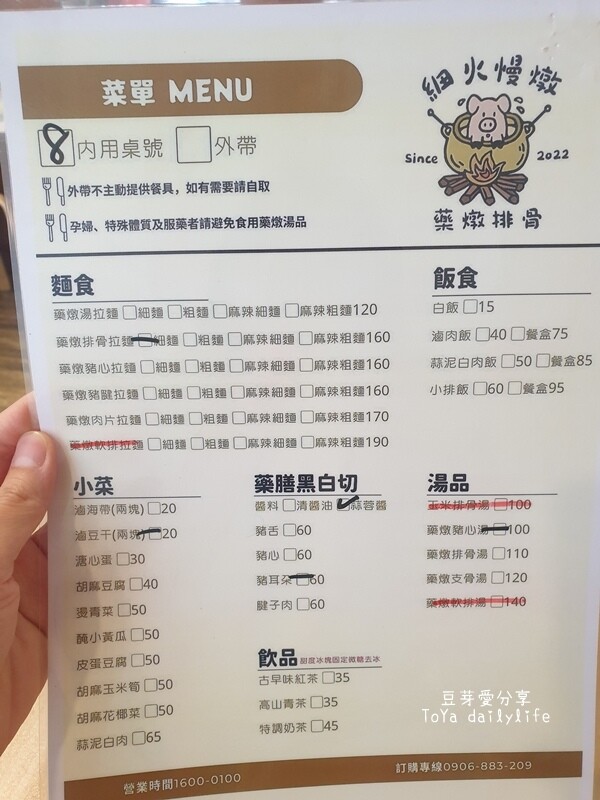 菜單 MENU
細火慢燉
Since 2022
藥燉排骨
8 內用桌號 外帶
外帶不主動提供餐具，如有需要請自取
孕婦、特殊體質及服藥者請避免食用藥燉湯品
麵食
藥燉湯拉麵 細麵 粗麵 麻辣細麵 麻辣粗麵120
藥燉排骨拉麵 細麵 粗麵 麻辣細麵 麻辣粗麵160
藥燉豬心拉麵 細麵 粗麵 麻辣細麵 麻辣粗麵160
藥燉豬腱拉麵 細麵 粗麵 麻辣細麵 麻辣粗麵160
藥燉肉片拉麵 細麵 粗麵 麻辣細麵 麻辣粗麵170
藥燉軟排拉麵 細麵 粗麵 麻辣細麵 麻辣粗麵190
飯食
白飯 15
滷肉飯 40 餐盒75
蒜泥白肉飯 50 餐盒85
小排飯 60 餐盒95
小菜
滷海帶(兩塊) 20
滷豆干(兩塊) 20
溏心蛋 30
胡麻豆腐 40
燙青菜 50
醃小黃瓜 50
皮蛋豆腐 50
胡麻玉米筍 50
胡麻花椰菜 50
蒜泥白肉 65
藥膳黑白切
醬料 清醬油 蒜蓉醬
豬舌 60
豬心 60
豬耳朵 60
腱子肉 60
飲品 甜度冰塊固定微糖去冰
古早味紅茶 35
高山青茶 35
特調奶茶 45
湯品
玉米排骨湯 100
藥燉豬心湯 100
藥燉排骨湯 110
藥燉支骨湯 120
藥燉軟排湯 140
豆芽愛分享
ToYa dailylife
營業時間1600-0100
訂購專線0906-883-209